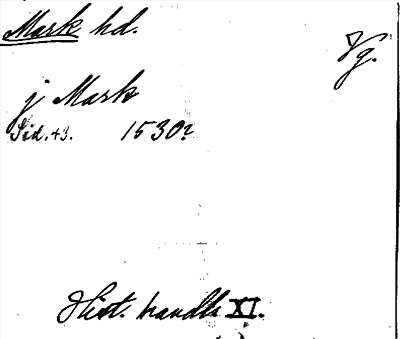 Mark hd.
Vg.
j Mark
Sid. 43. 1530?
Hist. handl. XI.